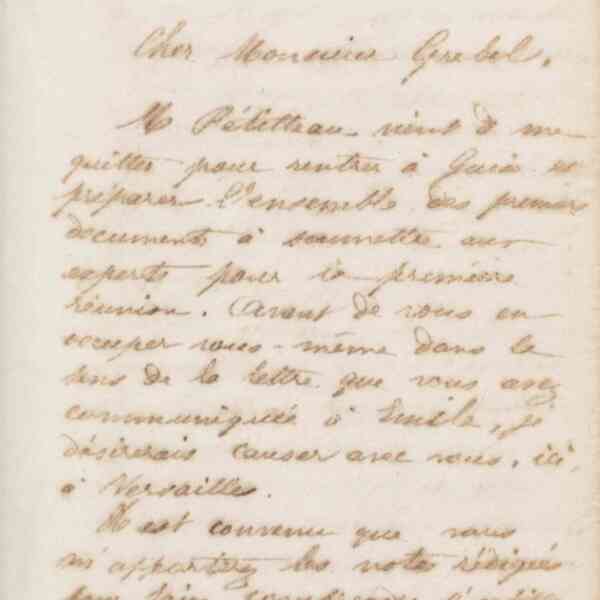 Cher Monsieur Grebel,
M Pétilleau vient de me
quitter pour rentrer à Guise et
préparer l'ensemble des premiers
documents à soumettre aux
experts pour la première
réunion. Avant de vous en
occuper vous-même dans le
sens de la lettre que vous avez
communiquée à Emile, je
désirerais causer avec vous, ici,
à Versailles.
Il est convenu que vous
m'apportiez les notes rédigées
pour faire comprendre